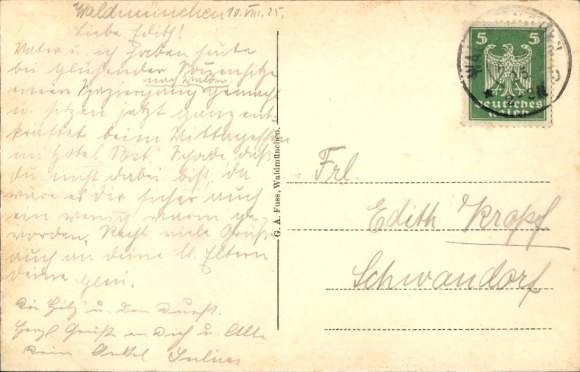 Waldmünchen 10. VIII. 25.
Liebe Edith!
Vater u. ich haben heute
bei glühender Sonnenhitze
einen Spaziergang gemacht
u. sitzen jetzt ganz ent-
kräftet beim Mittagessen
im Hotel "Post". Schade, daß
du nicht dabei bist, da
wäre es dir sicher auch
ein wenig warm ge-
worden. Recht viele Grüße
auch an deine lb. Eltern
deine
Die Hitz u. den Durst.
Herzl Grüße an Dich u. Alle
dein Onkel Julius
G. A. Fuss, Waldmünchen.
5 5
Deutsches
Reich
Frl.
Edith Kropf
Schwandorf